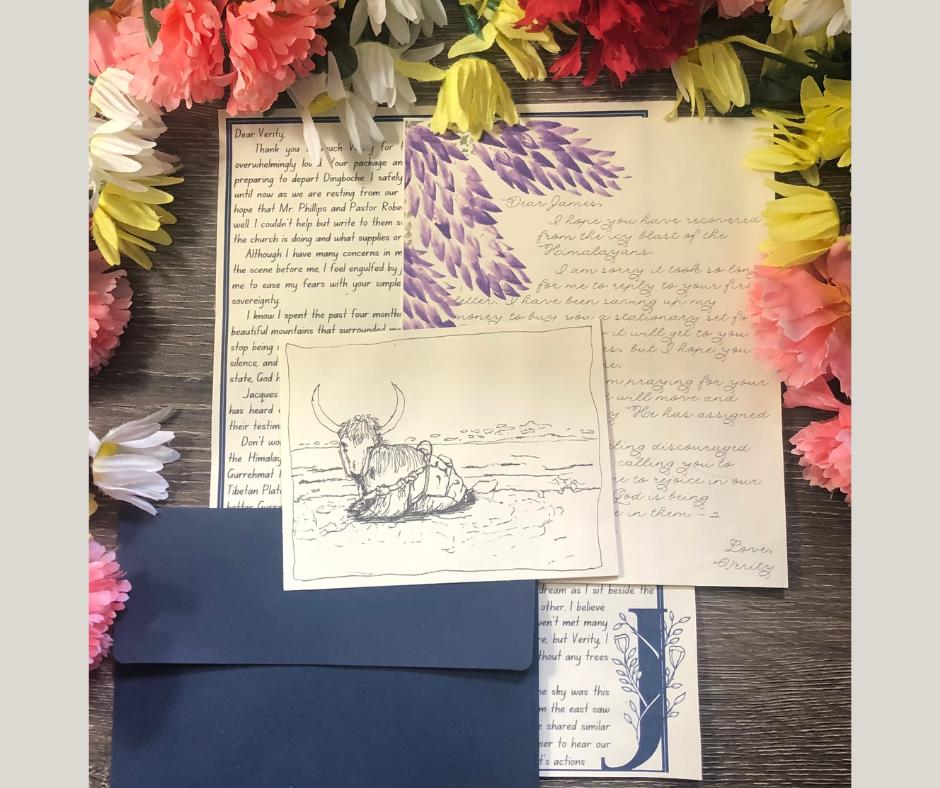 Dear Verity,
Thank you much for
overwhelmingly your package an
preparing to depart Dingboche. I safely
until now as we are resting from our
hope that Mr. Phillips and Pastor Robe
well. I couldn't help but write to them s
the church is doing and what supplies or
Although I have many concerns in m
the scene before me, I feel engulfed by
me to ease my fears with your simple
sovereignty.
I know I spent the past four months
beautiful mountains that surrounded
stop being
silence, and
state, God h
Jacques
has heard
their testim
Don't wo
the Himala
Gurrehmat
Tibetan Plate
Dear James,
I hope you have recovered
from the icy blast of the
Himalayans.
I am sorry it took so long
for me to reply to your firs
letter. I have been saving up my
money to buy you a stationary set fo
it will get to you
s, but I hope you
re.
m praying for your
will move and
y He has assigned
ling discouraged
calling you to
re to rejoice in our
God is being
e in them - 2
Love,
Verity
dream as I sit beside the
other. I believe
ven't met many
re, but Verity, I
thout any trees
he sky was this
m the east saw
e shared similar
ser to hear our
t's actions
J